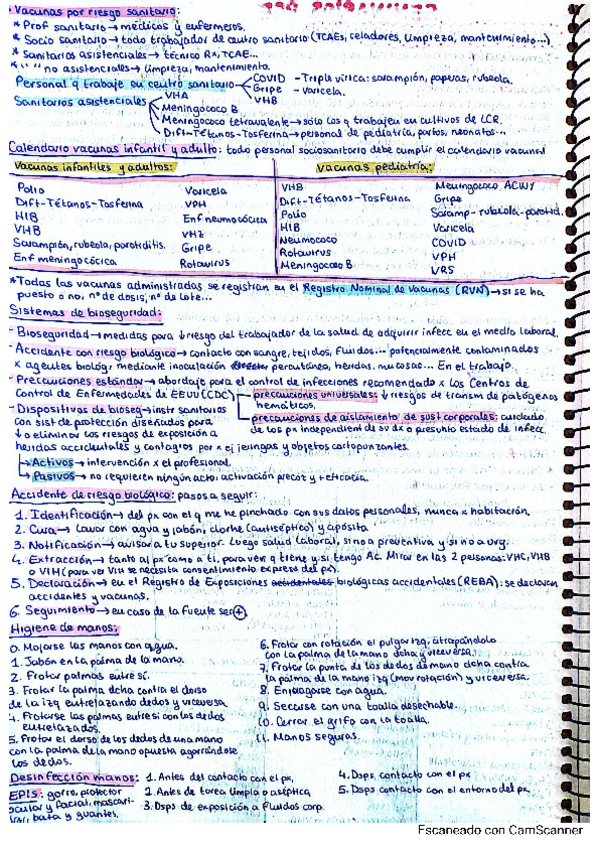 Vacunas por riesgo sanitario:
* Prof sanitario → médicos y enfermeros.
* Socio sanitario → todo trabajador de centro sanitario (TCAEs, celadores, limpieza, mantenimiento...)
* Sanitarios asistenciales → técnico Rx, TCAE...
* " " no asistenciales → limpieza, mantenimiento.
Personal q trabaje en centro sanitario COVID - Triple vírica: sarampión, paperas, rubeola.
Gripe - Varicela.
Sanitarios asistenciales VHA VHB
Meningococo B
Meningococo tetravalente → sólo los q trabajen en cultivos de LCR.
Dift-Tétanos-Tosferina → personal de pediatría, partos, neonatos...
Calendario vacunas infantil y adulto: todo personal sociosanitario debe cumplir el calendario vacunal
Vacunas infantiles y adultos:
Polio Varicela
Dift-Tétanos-Tosferina VPH
HIB Enf neumocócica
VHB VHZ
Sarampión, rubeola, parotiditis. Gripe
Enf meningocócica Rotavirus
Vacunas pediatría:
VHB Meningococo ACWY
Dift-Tétanos-Tosferina Gripe
Polio Saramp-rubeola-parotid.
HIB Varicela
Neumococo COVID
Rotavirus VPH
Meningococo B VRS
*Todas las vacunas administradas se registran en el Registro Nominal de Vacunas (RVN) → si se ha
puesto o no, nº de dosis, nº de lote...
Sistemas de bioseguridad:
- Bioseguridad → medidas para ↓ riesgo del trabajador de la salud de adquirir infecc en el medio laboral.
- Accidente con riesgo biológico → contacto con sangre, tejidos, fluidos... potencialmente contaminados
x agentes biológ mediante inoculación percutánea, heridas, mucosas... En el trabajo.
- Precauciones estándar → abordaje para el control de infecciones recomendado x los Centros de
Control de Enfermedades de EEUU (CDC) precauciones universales: ↓ riesgos de transm de patógenos
hemáticos.
precauciones de aislamiento de sust corporales: cuidado
de los px independient de su dx o presunto estado de infecc
- Dispositivos de bioseg → instr sanitarios
con sist de protección diseñados para
↓ o eliminar los riesgos de exposición a
heridas accidentales y contagios por x ej jeringas y objetos cortopunzantes.
→ Activos → intervención x el profesional.
→ Pasivos → no requieren ningún acto: activación precoz y + eficacia.
Accidente de riesgo biológico: pasos a seguir:
1. Identificación → del px con el q me he pinchado con sus datos personales, nunca x habitación.
2. Cura → Lavar con agua y jabón, clorhe (antiséptico) y apósito.
3. Notificación → avisar a tu superior. Luego salud laboral, si no a preventiva y si no a urg.
4. Extracción → tanto al px como a ti, para ver q tiene y si tengo Ac. Mirar en las 2 personas: VHC, VHB
o VIH (para ver VIH se necesita consentimiento expreso del px).
5. Declaración → en el Registro de Exposiciones accidentales biológicas accidentales (REBA): se declaran
accidentes y vacunas.
6. Seguimiento → en caso de la fuente ser +.
Higiene de manos:
0. Mojarse las manos con agua.
1. Jabón en la palma de la mano.
2. Frotar palmas entre sí.
3. Frotar la palma dcha contra el dorso
de la izq entrelazando dedos y viceversa
4. Frotarse las palmas entre si con los dedos
entrelazados.
5. Frotar el dorso de los dedos de una mano
con la palma de la mano opuesta agarrándose
los dedos.
6. Frotar con rotación el pulgar izq, atrapándolo
con la palma de la mano dcha y viceversa.
7. Frotar la punta de los dedos de mano dcha contra
la palma de la mano izq (mov rotación) y viceversa.
8. Enjuagarse con agua.
9. Secarse con una toalla desechable.
10. Cerrar el grifo con la toalla.
11. Manos seguras.
Desinfección manos: 1. Antes del contacto con el px,
2. Antes de tarea limpia o aséptica
3. Dsps de exposición a fluidos corp.
4. Dsps contacto con el px
5. Dsps contacto con el entorno del px.
EPIS: gorro, protector
ocular y facial, mascari-
llas, bata y guantes.
Escaneado con CamScanner